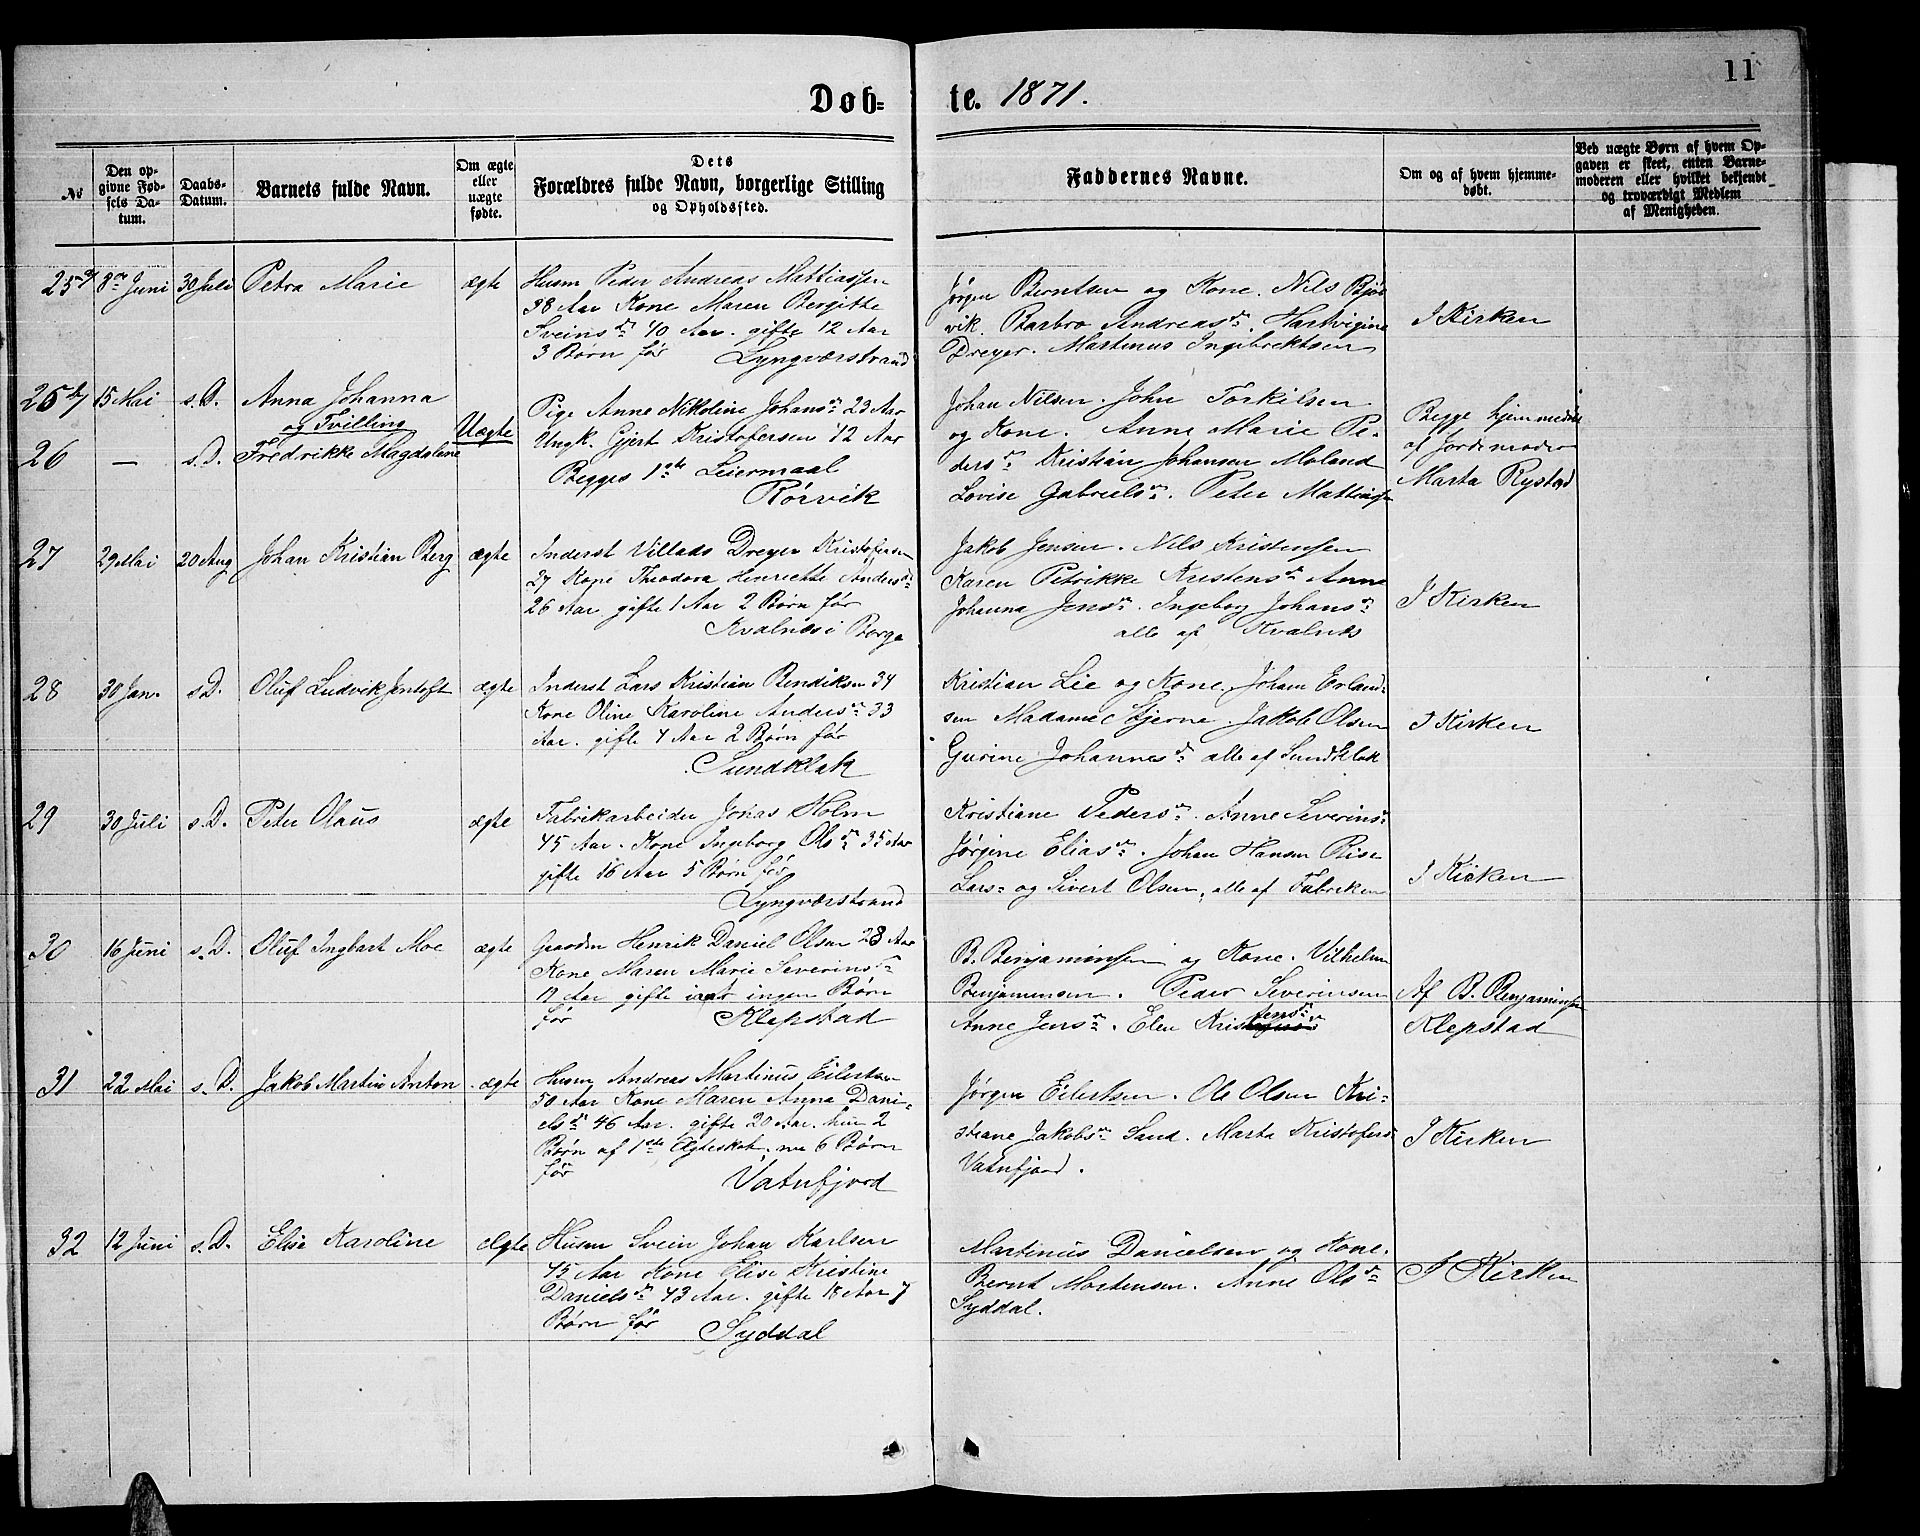 11
Døb- te. 1871.
No
Den op-
givne Fød-
sels Da-
tum.
Daabs-
Datum.
Barnets fulde Navn.
Om ægte
eller
uægte
fødte.
Dets
Forældres fulde Navn, borgerlige Stilling
og Opholdssted.
Faddernes Navne.
Om og af hvem hjemme-
døbt.
Ved uægte Børn af hvem Op-
gaven er skeet, enten Barne-
moderen eller hvilket bekjendt
og troværdigt Medlem
af Menigheden.
25 a/ 8de Juni 30 Juli Petra Marie ægte
Husm Peder Andreas Mattiassen
38 Aar Kone Maren Bergitte
Sveinsdr 40 Aar. gifte 12 Aar
3 Børn før Lyngværstrand
Jørgen Berntsen og Kone. Nils Bjør
vik. Barbro Andreasdr. Hartvigine
Dreyer. Martinus Ingebrektsen
I Kirken
25 b/ 15 Mai s.D. Anna Johanna
og Tvilling
26 — s.D. Fredrikke Magdaline
Uægte
Pige Anne Nikoline Johansdr 23 Aar
Ungk. Gjert Kristofersen 42 Aar
Begges 1ste Leiermaal
Rørvik
Johan Nilsen. John Torkilsen
og Kone. Anne Marie Pe-
dersdr Kristian Johansen Moland
Lovise Gabrielsdr. Peter Mattias
Begge hjemmedøbt
af Jordemoder
Marta Rystad
27 29 Mai 20 Aug Johan Kristian Berg ægte
Inderst Villads Dreyer Kristofersen
27 Kone Theodora Henriette Andersdr
26 Aar gifte 1 Aar 2 Børn før
Kvalnæs i Borge
Jakob Jensen. Nils Kristensen
Karen Petrikke Kristensdr Anne
Johanna Jensdr. Ingeborg Johansdr
alle af Kvalnæs
I Kirken
28 30 Jan. s.D. Oluf Ludvik Jentoft ægte
Inderst Lars Kristian Bendiksen 34
Kone Oline Karoline Andersdr 33
Aar. gifte 4 Aar 2 Børn før
Sundklak
Kristian Lie og Kone. Johan Erland-
sen Madame Stjerne. Jakob Olsen
Gurine Johannesdr alle af Sundklak
I Kirken
29 30 Juli s.D. Peter Olaus ægte
Fabrikarbeider Jonas Holm
45 Aar. Kone Ingeborg Olsdr 35 Aar
gifte 16 Aar 5 Børn før
Lyngværstrand
Kristiane Pedersdr. Anne Severinsdr
Jørgine Eliasdr. Johan Hansen Rise
Lars- og Sivert Olsen, alle af Fabriken
I Kirken
30 16 Juni s.D. Oluf Ingbart Moe ægte
Gaardm Henrik Daniel Olsen 28 Aar
Kone Maren Marie Severinsdr
19 Aar gifte iaar ingen Børn
før Klepstad
B. Benjaminsen og Kone. Vilhelm
Benjaminsen. Peder Severinsen
Anne Jensdr. Elen Kristensdr
Af B. Benjaminsen
Klepstad
31 22 Mai s.D. Jakob Martin Anton ægte
Husm Andreas Martinus Eilertsen
50 Aar Kone Maren Anna Dani-
elsdr 46 Aar. gifte 20 Aar. hun 2
Børn af 1ste Ægteskab, nu 6 Børn
før Vatnfjord
Jørgen Eilertsen. Ole Olsen Kri-
stiane Jakobsdr Sand. Marta Kristofersdr
Vatnfjord.
I Kirken
32 12 Juni s.D. Elise Karoline Ægte
Husm Svein Johan Karlsen
45 Aar Kone Elise Kristine
Danielsdr 43 Aar. gifte 18 Aar 7
Børn før Syddal
Martinus Danielsen og Kone.
Bernt Mortensen. Anne Olsdr
Syddal.
I Kirken